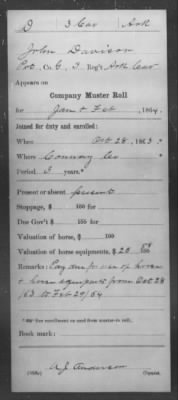 D 3 Cav Ark
John Davison
Pvt, Co. C, 3 Reg't Ark Cav
Appears on
Company Muster Roll
for Jan & Feb, 1864.
Joined for duty and enrolled:
When Oct 28, 1863.*
Where Conway Co
Period 3 years.*
Present or absent Present
Stoppage, $ 100 for
Due Gov't $ 100 for
Valuation of horse, $ 100
Valuation of horse equipments, $ 25 100
Remarks: Pay due for use of horse
& horse equipments from Oct 28
/63 to Feb 29/64
*See enrollment on card from muster-in roll.
Book mark:
A. J. Anderson
(358c) Copyist.